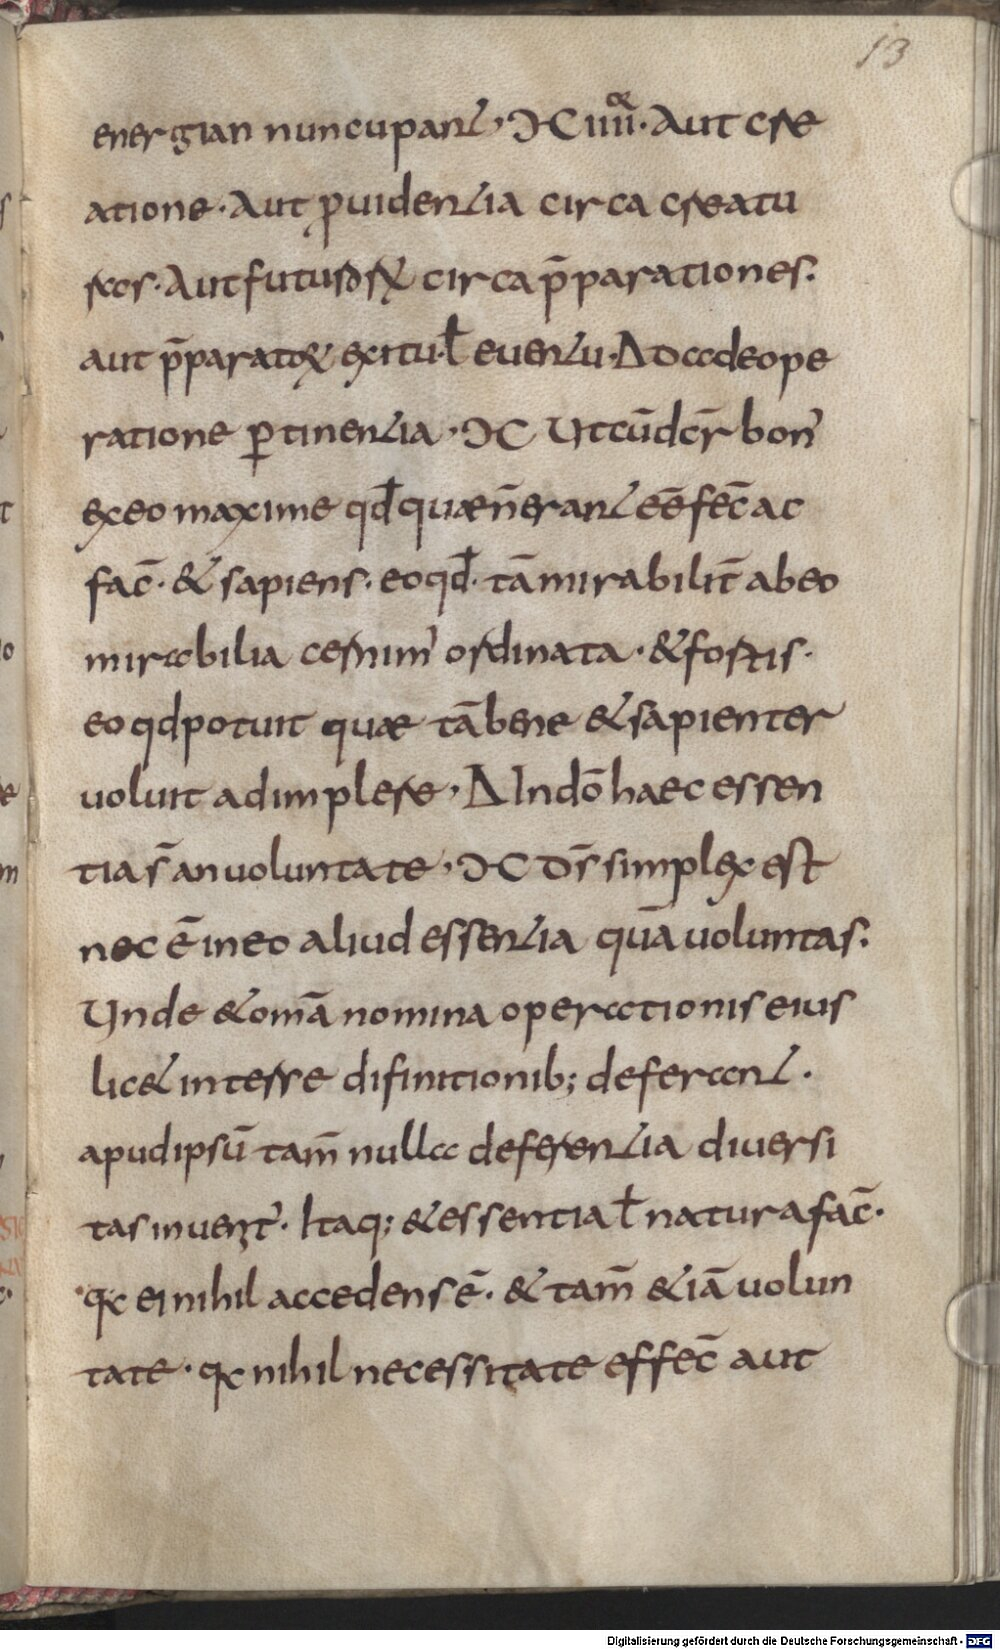 13
energian nuncupant, ϽC iiii or · Aut cre
atione · Aut ꝓuidentia circa creatu
ras · Aut futuroꝝ circa p̄parationes.
aut p̄paratoꝝ exitu · ł euentu · Δ Da de ope
ratione ꝑtinentia · ϽC Ut cū dc̄r bon᾽
ex eo maxime qd̄ quæ n̄ erant eē fec̄ ac
fac̄ · & sapiens · eo qd̄ · tā mirabilit̄ ab eo
mirabilia cernim᾽ ordinata · & fortis ·
eo qd potuit quæ tā bene & sapienter
uoluit adimplere, Δ In dō haec essen
tia s̄ an uoluntate, ϽC Ds̄ simplex est
nec ē in eo aliud essentia quā uoluntas.
Unde & om̄a nomina operationis eius
licet in terrae difinitionib; deferant ·
apud ipsū tam̄ nulla deferentia diuersi
tas inuenit᾽ · Itaq; & essentia ł natura fac̄ ·
qa ei nihil accedens ē · & tam̄ & iā uolun
tate · qa nihil necessitate effec̄ aut
Digitalisierung gefördert durch die Deutsche Forschungsgemeinschaft - DFG